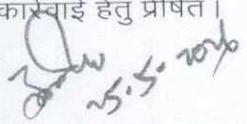 कार्रवाई हेतु प्रेषित।
25.5.2026